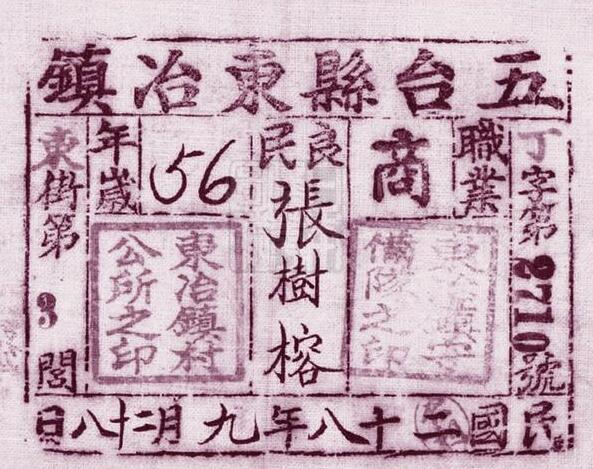 五台縣東冶鎮
丁字第2710號
職業
商
東冶鎮守
備隊之印
良民
張樹榕
年歲
56
東冶鎮村
公所之印
東街第3閭
民國二十八年九月二十八日